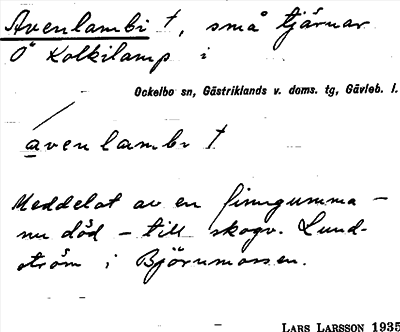 Avenlambi †, små tjärnar
O Kolkilamp i
Ockelbo sn, Gästriklands v. doms. tg, Gävleb. l.
avenlambi †
Meddelat av en finngumma –
nu död – till skogv. Lund-
ström i Björnmossen.
LARS LARSSON 1935